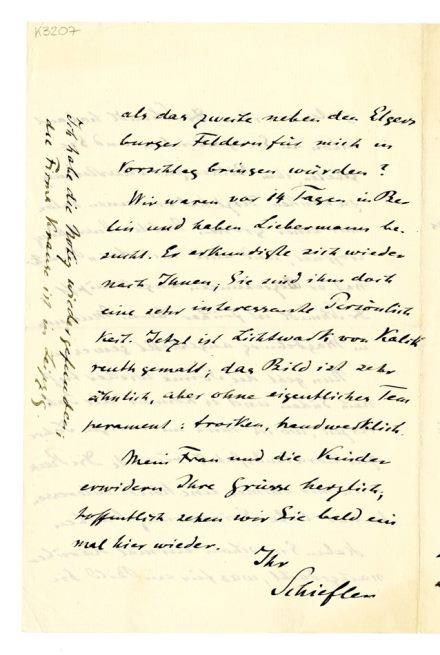 K3207
als das zweite neben den Elgers
burger Feldern für mich in
Vorschlag bringen würden?
Wir waren vor 14 Tagen in Ber
lin und haben Liebermann be
sucht. Er erkundigte sich wieder
nach Ihnen; Sie sind ihm doch
eine sehr interessante Persönlich
keit. Jetzt ist Lichtwark von Kalck
reuth gemalt; das Bild ist sehr
ähnlich, aber ohne eigentliches Tem
perament: trocken, handwerklich.
Meine Frau und die Kinder
erwidern Ihre Grüsse herzlich;
hoffentlich sehen wir Sie bald ein
mal hier wieder.
Ihr
Schiefler
Ich habe die Notiz wiedergefunden:
die Firma Krause ist in Leipzig.